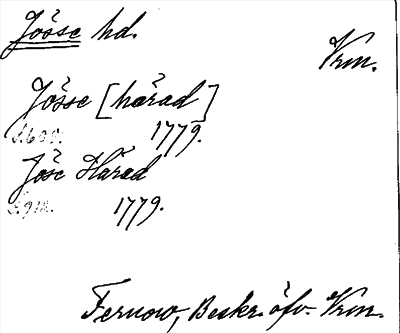 Jösse hd.
Vrm.
Jösse [härad]
S. 600. 1779.
Jöse Härad
S. 912. 1779.
Fernow, Beskr. öfv. Vrm.